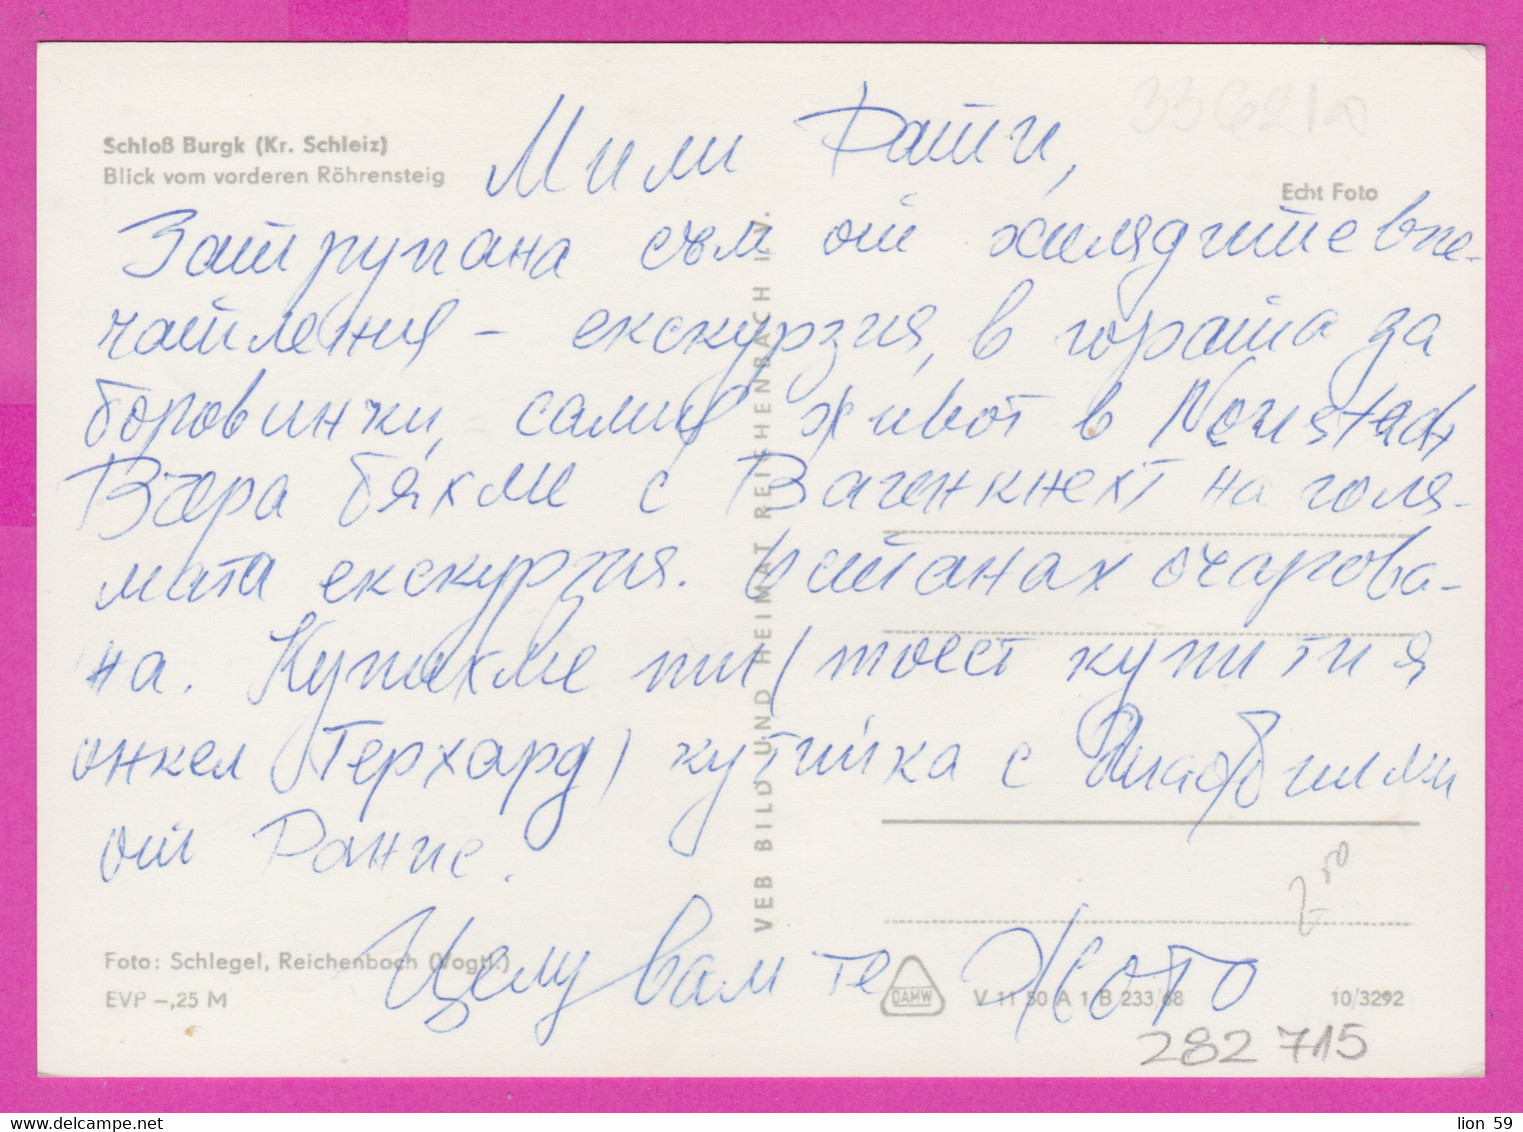 Schloß Burgk (Kr. Schleiz)
Blick vom vorderen Röhrensteig
Echt Foto
Мили Фатти,
Затрупана съм от хилядите впе-
чатления – екскурзия, в гората за
боровинки, самия живот в Neustadt
Вчера бяхме с Вагенкнехт на голя-
мата екскурзия. Останах очарова-
на. Купихме ти (тоест купи ти я
онкел Герхард) кутийка с
от Ранис.
Целувам те Жото
Foto: Schlegel, Reichenbach (Vogtl.)
EVP –,25 M
VEB BILD UND HEIMAT REICHENBACH I. V.
DAMW
V 11 50 A 1 B 233/68
10/3292
282 715
lion 59